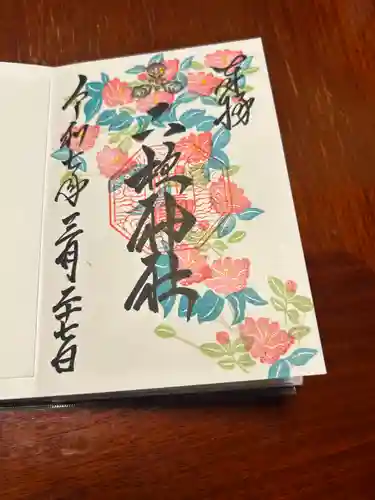 奉拝
六椹神社
令和七年三月二十七日